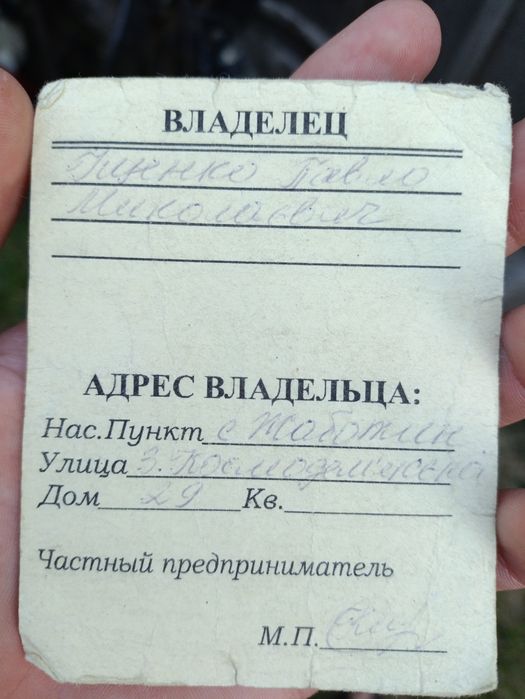 ВЛАДЕЛЕЦ
Павло
Миколаєвич
АДРЕС ВЛАДЕЛЬЦА:
Нас.Пункт с Жаботин
Улица З. Космодем'янська
Дом 29 Кв.
Частный предприниматель
М.П.